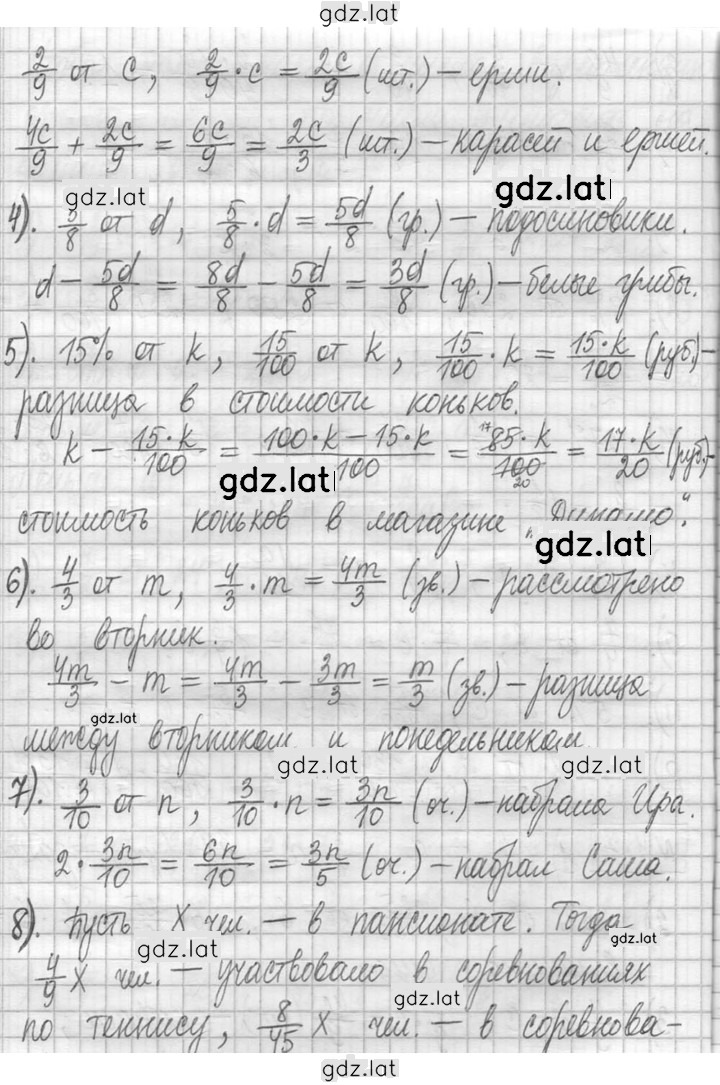 gdz.lat
2/9 от c, 2/9 · c = 2c/9 (шт.) – ерши.
4c/9 + 2c/9 = 6c/9 = 2c/3 (шт.) – карасей и ершей.
gdz.lat gdz.lat
4). 5/8 от d, 5/8 · d = 5d/8 (гр.) – подосиновики.
d – 5d/8 = 8d/8 – 5d/8 = 3d/8 (гр.) – белые грибы.
5). 15% от k, 15/100 от k, 15/100 · k = 15·k/100 (руб.) –
разница в стоимости коньков.
k – 15·k/100 = 100·k – 15·k/100 = 17 85·k/100 20 = 17·k/20 (руб.) –
gdz.lat
стоимость коньков в магазине „Динамо“.
gdz.lat
6). 4/3 от m, 4/3 · m = 4m/3 (зв.) – рассмотрено
во вторник.
4m/3 – m = 4m/3 – 3m/3 = m/3 (зв.) – разница
gdz.lat
между вторником и понедельником.
gdz.lat gdz.lat
7). 3/10 от n, 3/10 · n = 3n/10 (оч.) – набрала Ира.
2 · 3n/10 = 6n/10 = 3n/5 (оч.) – набрал Саша.
8). Пусть x чел. – в пансионате. Тогда
gdz.lat gdz.lat
4/9 x чел. – участвовало в соревнованиях
gdz.lat
по теннису, 8/45 x чел. – в соревнова-
gdz.lat